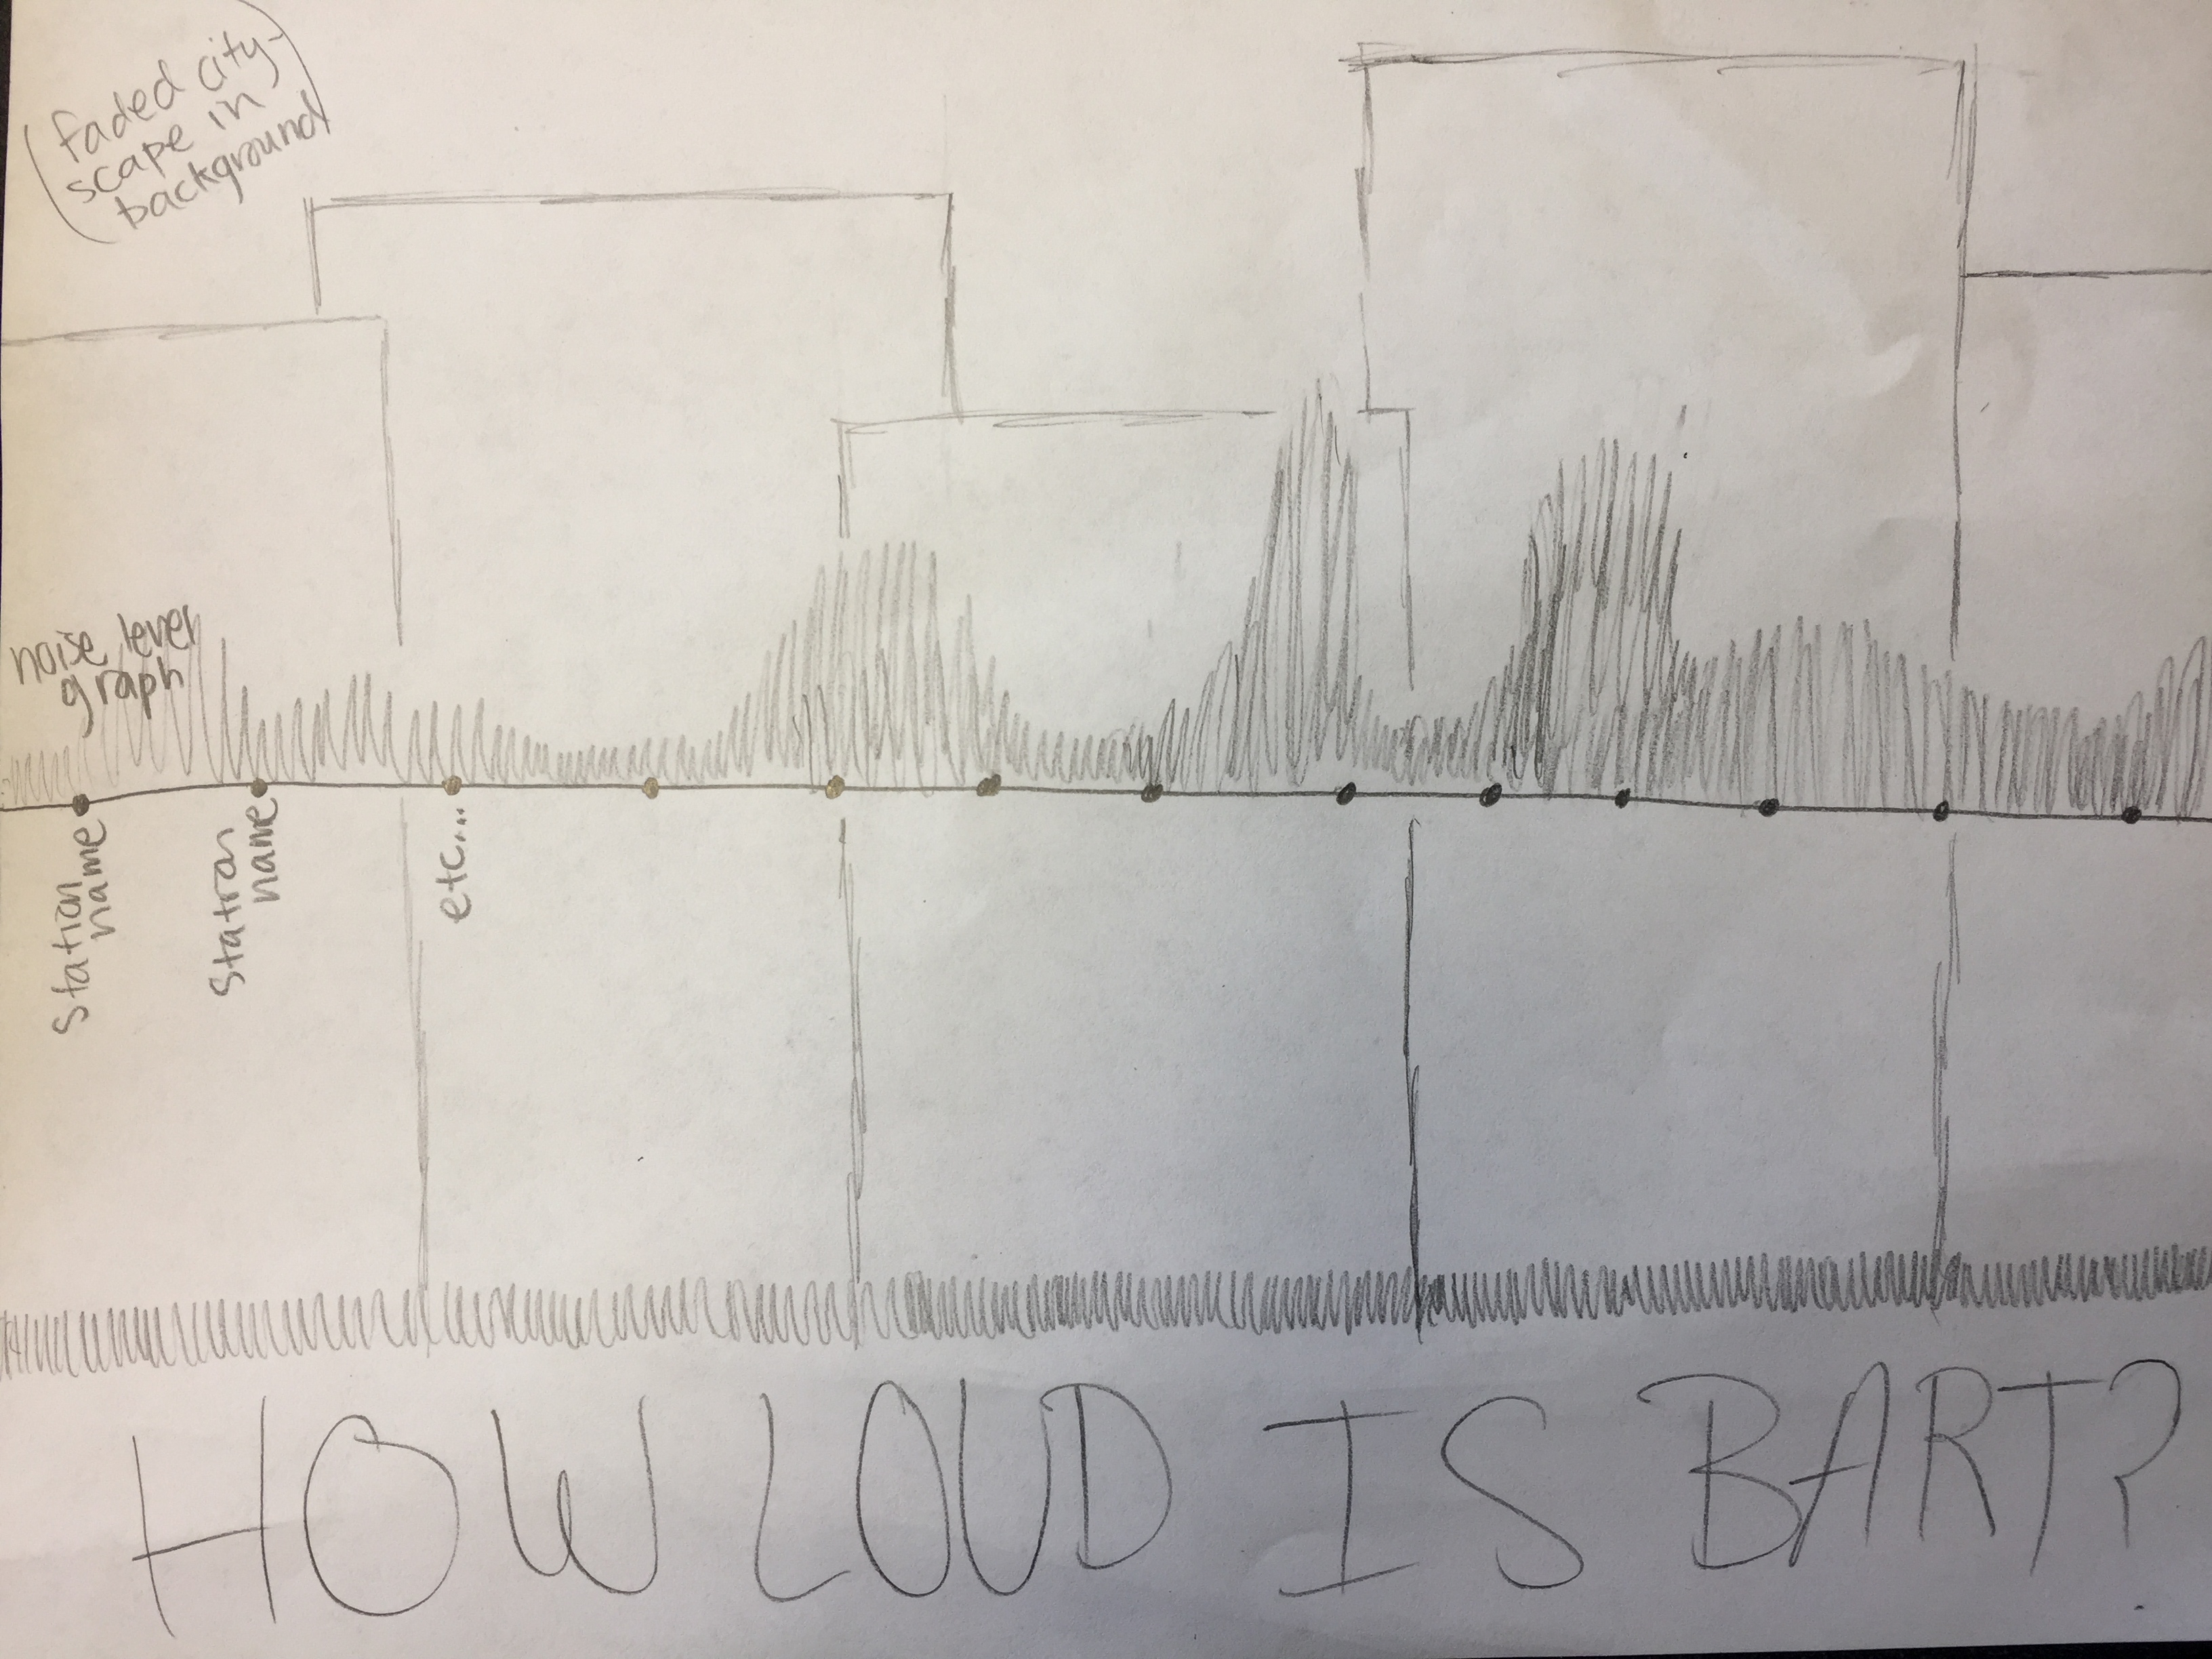 (faded city-
scape in
background)
noise level
graph
Station
name
Station
name
etc...
HOW LOUD IS BART?